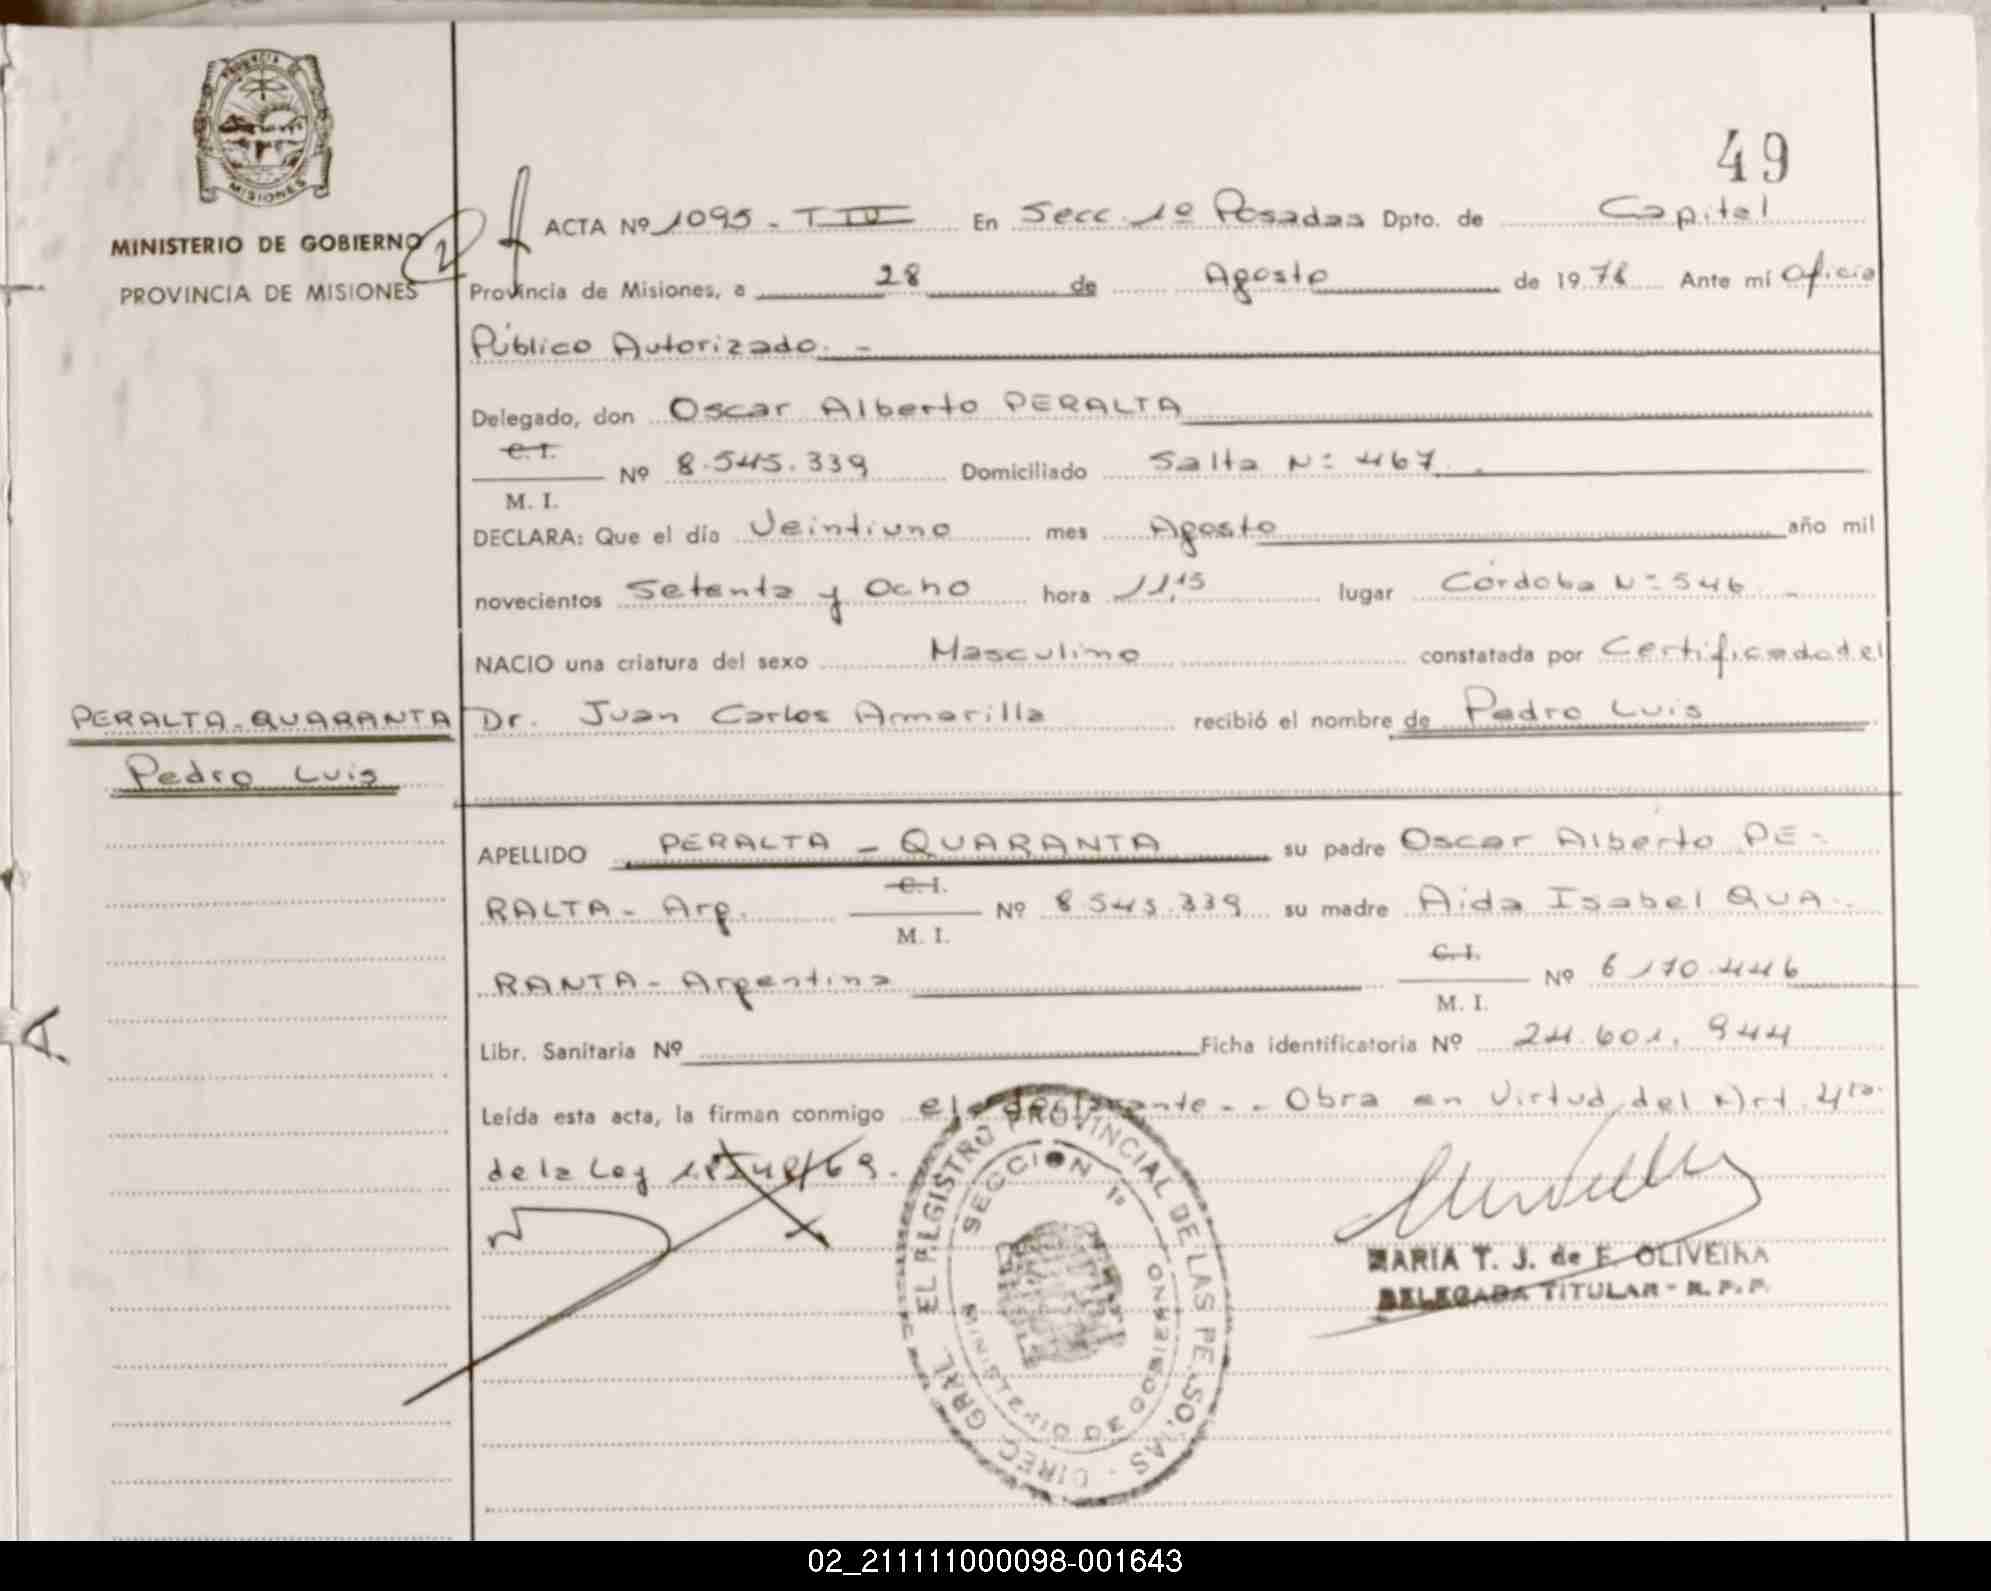 49
MINISTERIO DE GOBIERNO
PROVINCIA DE MISIONES
MISIONES
2
ACTA Nº 1095 - T IV En Secc. 1º Posadas Dpto. de Capital
Provincia de Misiones, a 28 de Agosto de 1978 Ante mí Oficia
Público Autorizado. -
Delegado, don Oscar Alberto PERALTA
C. I.
M. I.
Nº 8.545.339 Domiciliado Salta Nº 467.
DECLARA: Que el día Veintiuno mes Agosto año mil
novecientos Setenta y Ocho hora 11,15 lugar Córdoba Nº 546 -
NACIO una criatura del sexo Masculino constatada por Certificado del
Dr. Juan Carlos Amarilla recibió el nombre de Pedro Luis
PERALTA-QUARANTA
Pedro Luis
APELLIDO PERALTA - QUARANTA su padre Oscar Alberto PE-
RALTA - Arg. C. I. M. I. Nº 8.545.339 su madre Aida Isabel QUA-
RANTA - Argentina C. I. M. I. Nº 6.170.446
Libr. Sanitaria Nº Ficha identificatoria Nº 24.601.944
Leída esta acta, la firman conmigo el declarante - - Obra en Virtud del Art. 4to.
de la Ley 18248/69.
DIREC. GRAL. DEL REGISTRO PROVINCIAL DE LAS PERSONAS
SECCION 1º
MINISTERIO DE GOBIERNO
MARIA T. J. de F. OLIVEIRA
DELEGADA TITULAR - R. P. P.
02_211111000098-001643